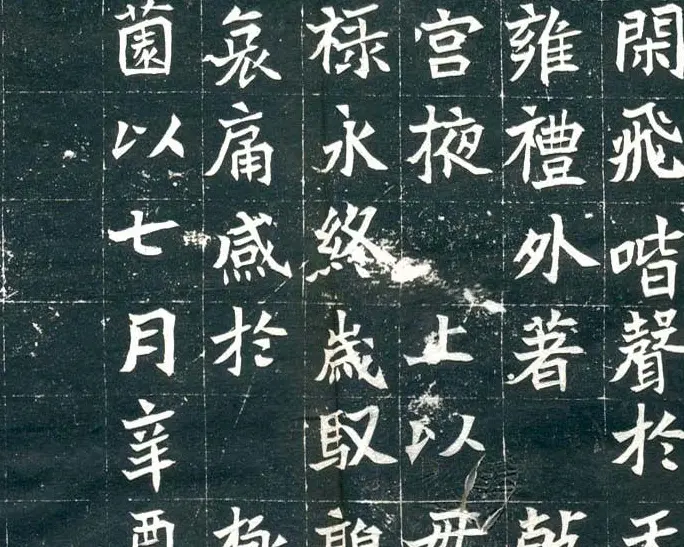 閑飛喈聲於
雍禮外著
宮掖止以
禄永終歲馭
哀痛感於極
薗以七月辛酉